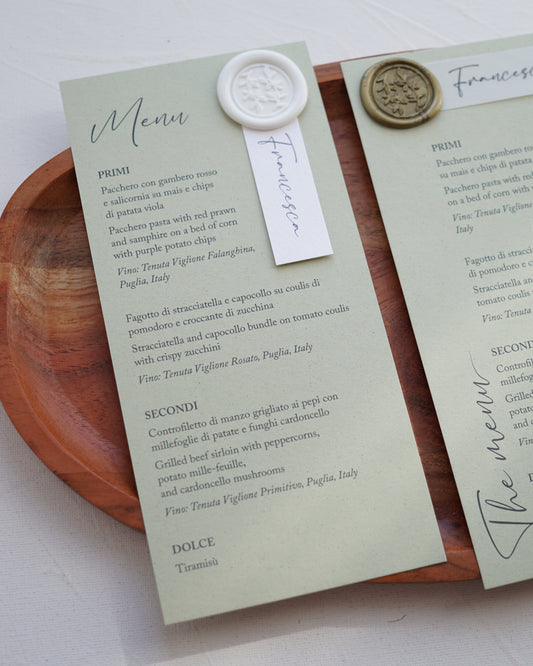 Menu
Francesca
PRIMI
Pacchero con gambero rosso
e salicornia su mais e chips
di patata viola
Pacchero pasta with red prawn
and samphire on a bed of corn
with purple potato chips
Vino: Tenuta Viglione Falanghina,
Puglia, Italy
Fagotto di stracciatella e capocollo su coulis di
pomodoro e croccante di zucchina
Stracciatella and capocollo bundle on tomato coulis
with crispy zucchini
Vino: Tenuta Viglione Rosato, Puglia, Italy
SECONDI
Controfiletto di manzo grigliato ai pepi con
millefoglie di patate e funghi cardoncello
Grilled beef sirloin with peppercorns,
potato mille-feuille,
and cardoncello mushrooms
Vino: Tenuta Viglione Primitivo, Puglia, Italy
DOLCE
Tiramisù
Francesc
PRIMI
Pacchero con gambero
su mais e chips di patata
Pacchero pasta with red
on a bed of corn with
Vino: Tenuta Viglione
Italy
Fagotto di stracciatella
di pomodoro e
Stracciatella and
tomato coulis
Vino: Tenuta
SECOND
Controfile
millefogl
Grilled
potato
and c
Vino
D
The menu